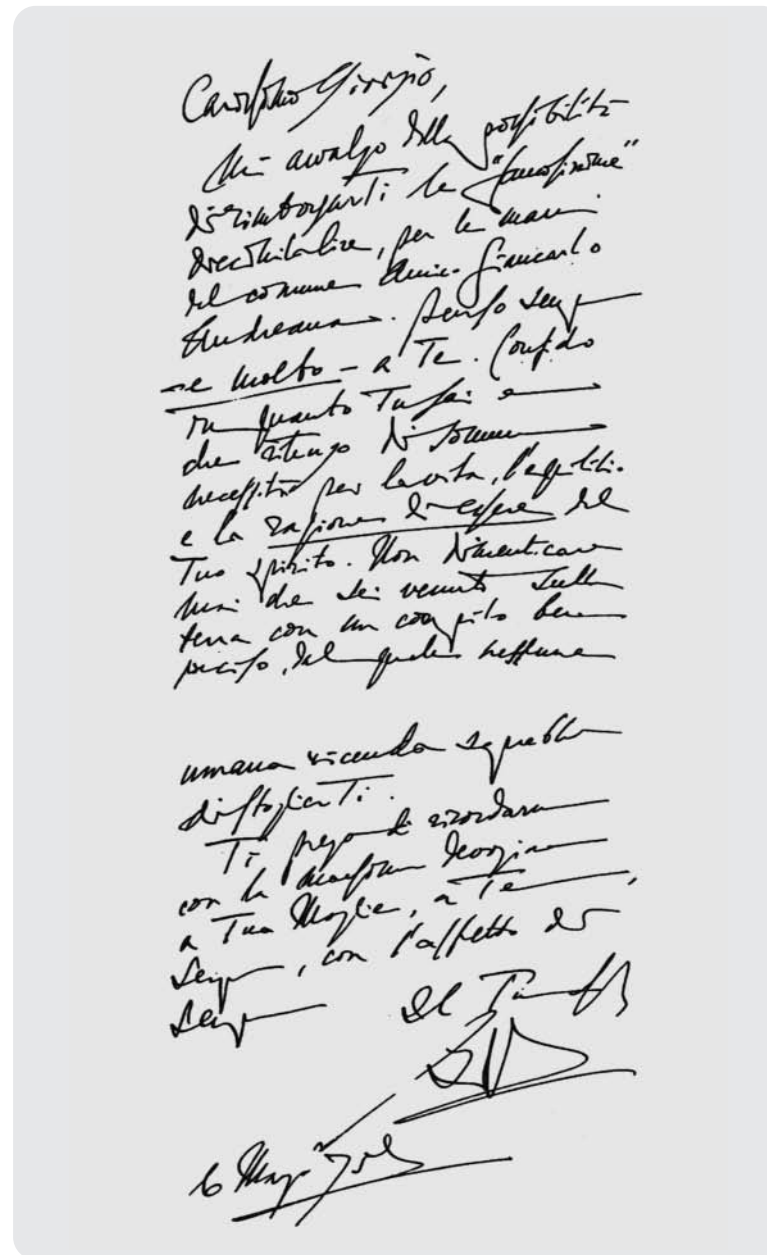 Carissimo Giorgio,
Mi avvalgo della possibilità
di rimborsarti le "famosissime"
diecimilalire, per le mani
del comune amico Giancarlo
Andreana. Penso sempre
– e molto – a Te. Confido
in quanto Tu fai e
che ritengo di somma
necessità per la vita, l'equilibrio
e la ragione di essere del
Tuo spirito. Non dimenticare
mai che sei venuto sulla
terra con un compito ben
preciso, dal quale nessuna
umana vicenda saprebbe
distoglierTi.
Ti prego di ricordarmi
con la massima
a Tua Moglie, a Te,
sempre, con l'affetto di
sempre